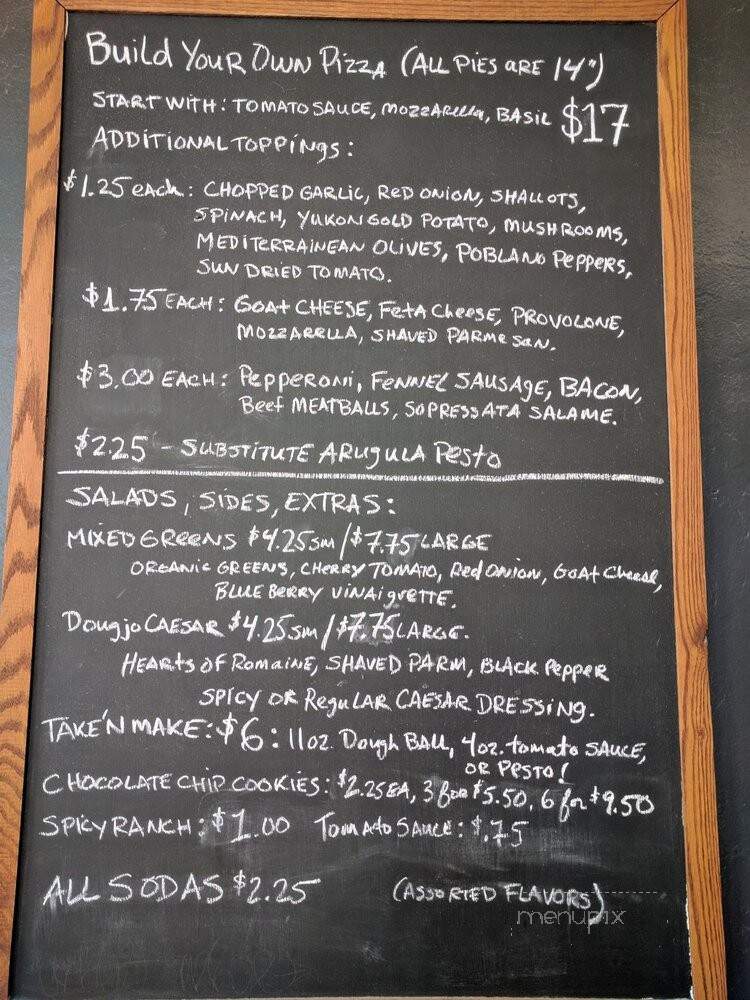 Build Your Own Pizza (All pies are 14")
Start with: Tomato Sauce, Mozzarella, Basil $17
Additional Toppings:
$1.25 each: Chopped Garlic, Red Onion, Shallots,
Spinach, Yukon Gold Potato, Mushrooms,
Mediterrainean Olives, Poblano Peppers,
Sun Dried Tomato.
$1.75 each: Goat Cheese, Feta Cheese, Provolone,
Mozzarella, Shaved Parmesan.
$3.00 each: Pepperoni, Fennel Sausage, Bacon,
Beef Meatballs, Sopressata Salame.
$2.25 - Substitute Arugula Pesto
Salads, Sides, Extras:
Mixed Greens $4.25 sm / $7.75 Large
Organic Greens, Cherry Tomato, Red Onion, Goat Cheese,
Blueberry Vinaigrette.
Dougjo Caesar $4.25 sm / $7.75 Large.
Hearts of Romaine, Shaved Parm, Black Pepper
Spicy or Regular Caesar Dressing.
Take'n Make: $6: 11oz. Dough Ball, 4oz. tomato sauce,
or Pesto!
Chocolate Chip Cookies: $2.25 ea, 3 for $5.50, 6 for $9.50
Spicy Ranch: $1.00 Tomato Sauce: $.75
All Sodas $2.25 (Assorted Flavors)
menupix